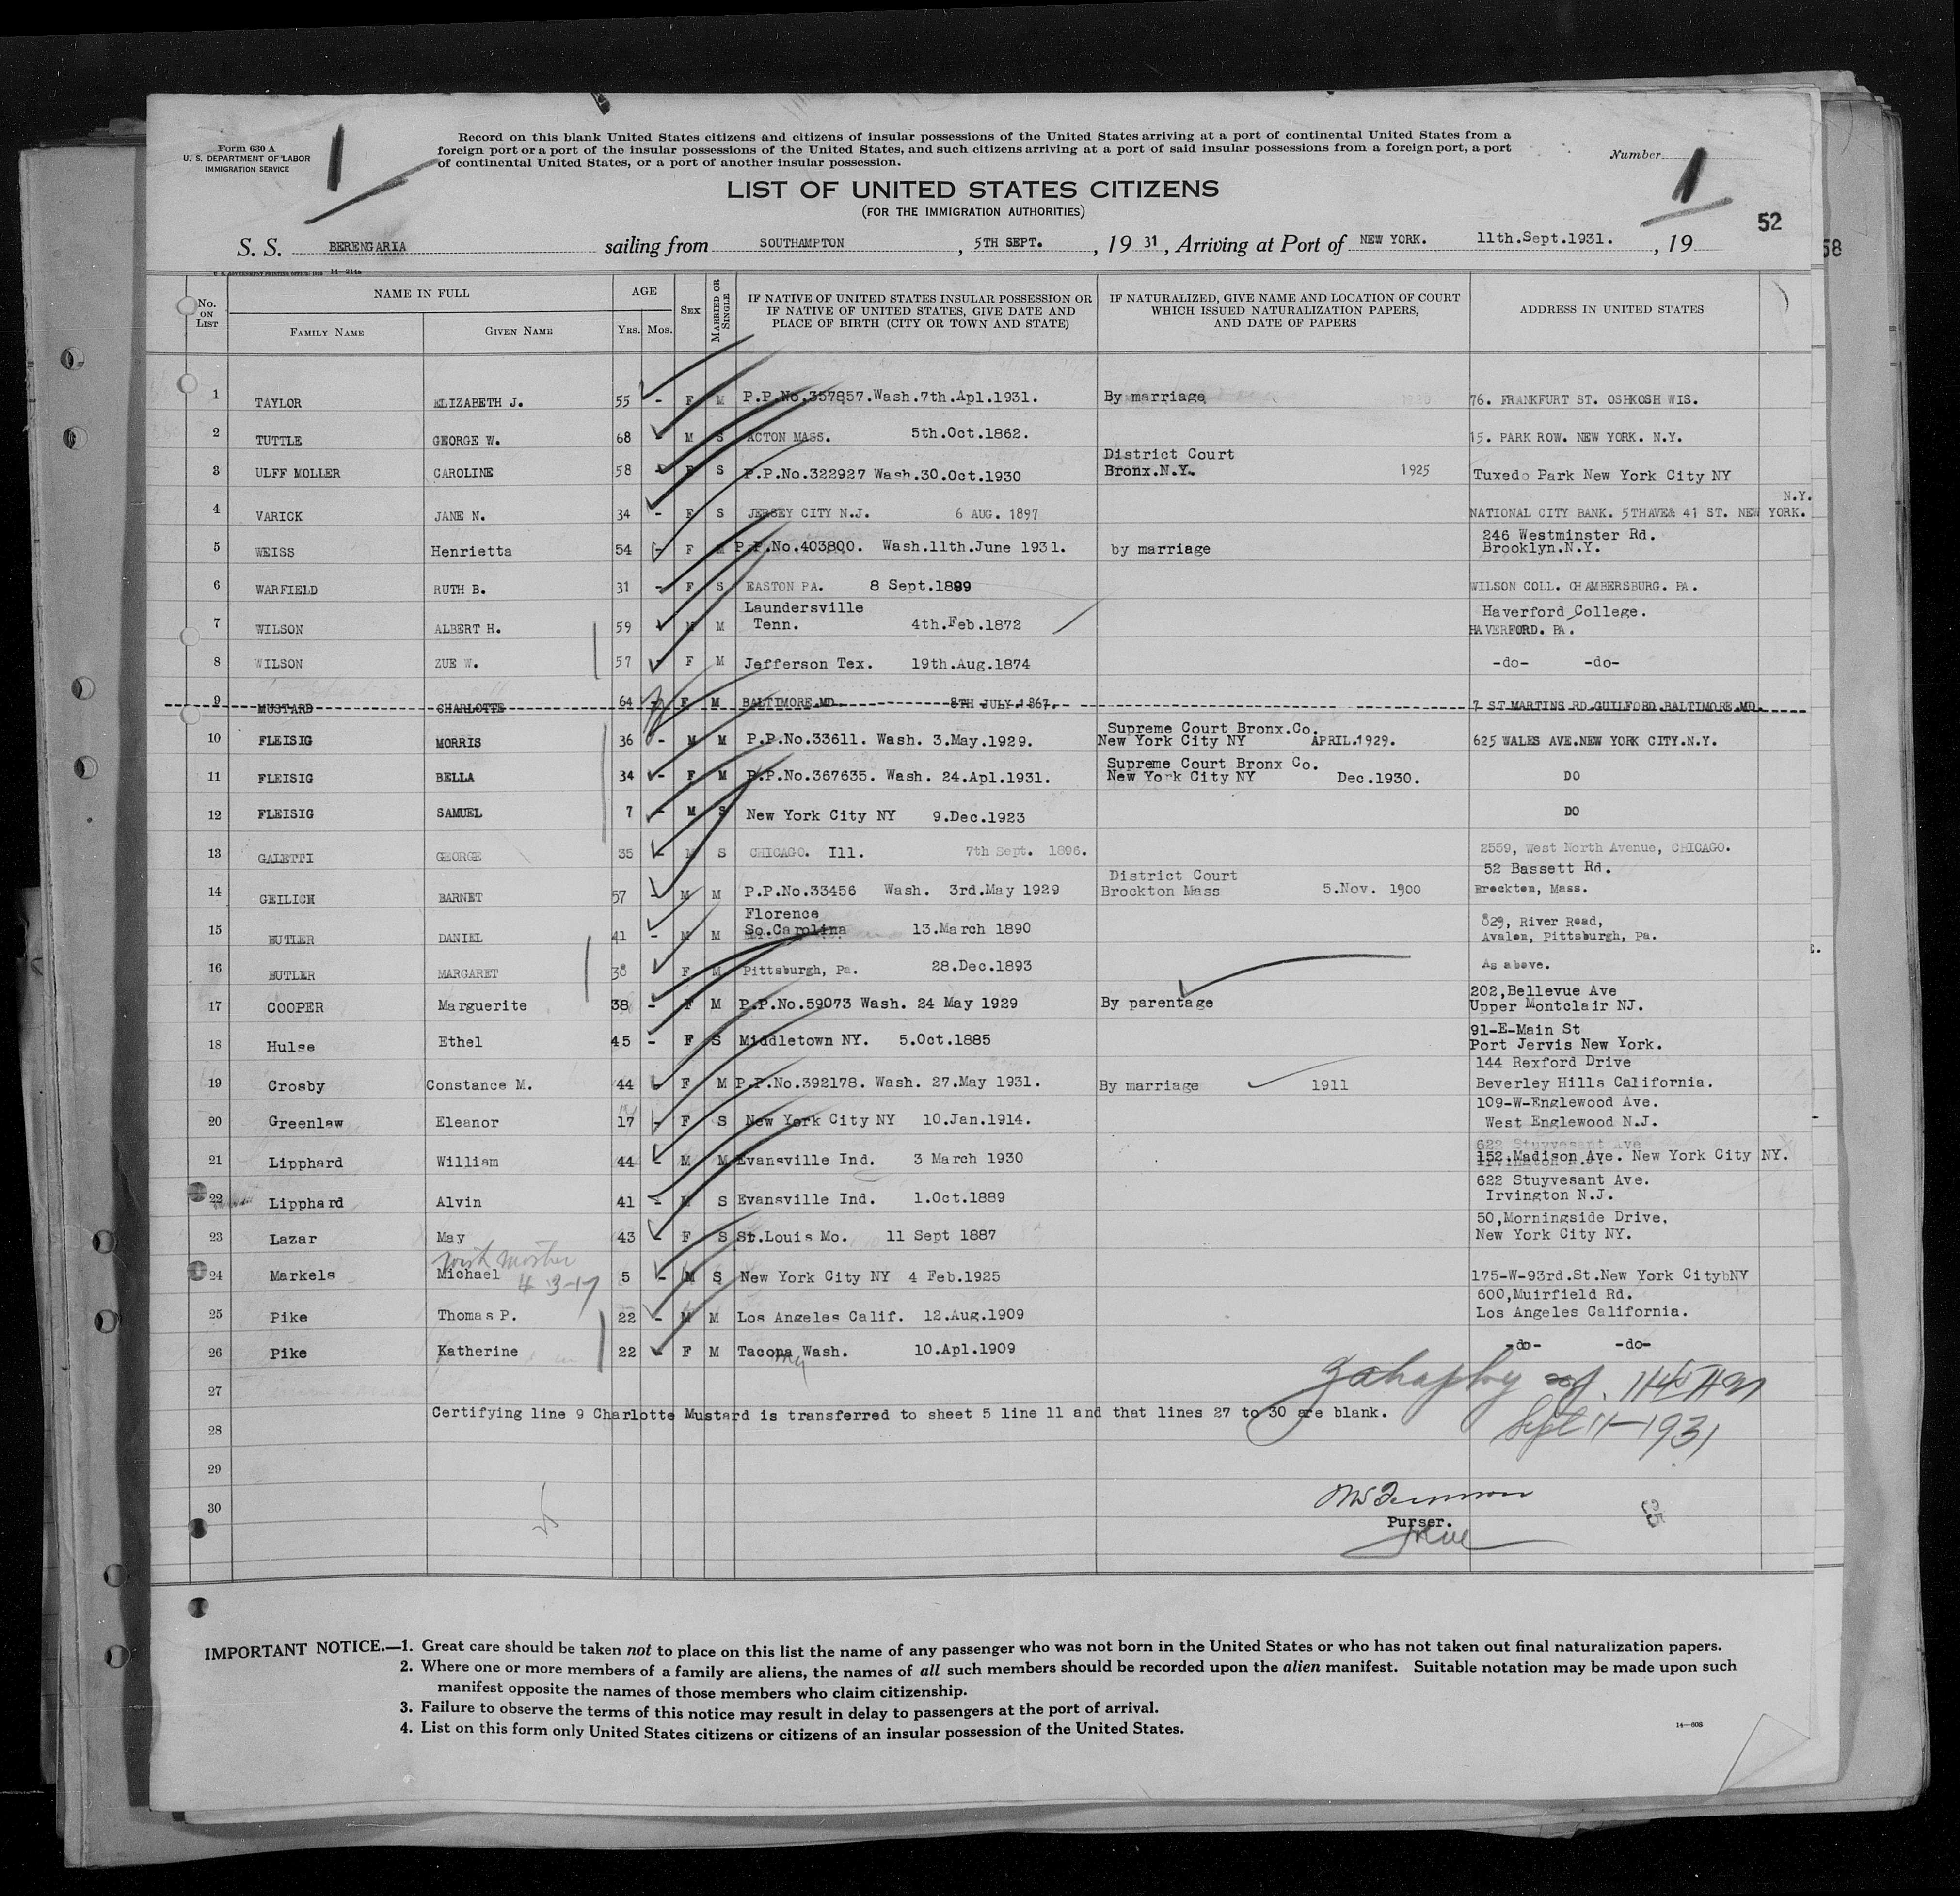 Form 630 A
U. S. DEPARTMENT OF LABOR
IMMIGRATION SERVICE
1
Record on this blank United States citizens and citizens of insular possessions of the United States arriving at a port of continental United States from a
foreign port or a port of the insular possessions of the United States, and such citizens arriving at a port of said insular possessions from a foreign port, a port
of continental United States, or a port of another insular possession.
Number 1
LIST OF UNITED STATES CITIZENS
(FOR THE IMMIGRATION AUTHORITIES)
52
58
S. S. BERENGARIA sailing from SOUTHAMPTON , 5TH SEPT. , 19 31 , Arriving at Port of NEW YORK. 11th.Sept.1931. , 19
14—214a
No. ON LIST
NAME IN FULL
FAMILY NAME
GIVEN NAME
AGE
YRS. MOS.
SEX
MARRIED OR SINGLE
IF NATIVE OF UNITED STATES INSULAR POSSESSION OR
IF NATIVE OF UNITED STATES, GIVE DATE AND
PLACE OF BIRTH (CITY OR TOWN AND STATE)
IF NATURALIZED, GIVE NAME AND LOCATION OF COURT
WHICH ISSUED NATURALIZATION PAPERS,
AND DATE OF PAPERS
ADDRESS IN UNITED STATES
1 TAYLOR ELIZABETH J. 55 - F M P.P.No.357857.Wash.7th.Apl.1931. By marriage 76. FRANKFURT ST. OSHKOSH WIS.
2 TUTTLE GEORGE W. 68 - M S ACTON MASS. 5th.Oct.1862. 15. PARK ROW. NEW YORK. N.Y.
District Court
3 ULFF MOLLER CAROLINE 58 - F S P.P.No.322927 Wash.30.Oct.1930 Bronx.N.Y. 1925 Tuxedo Park New York City NY
N.Y.
4 VARICK JANE N. 34 - F S JERSEY CITY N.J. 6 AUG. 1897 NATIONAL CITY BANK. 5THAVE& 41 ST. NEW YORK.
246 Westminster Rd.
5 WEISS Henrietta 54 - F M P.P.No.403800. Wash.11th.June 1931. by marriage Brooklyn.N.Y.
6 WARFIELD RUTH B. 31 - F S EASTON PA. 8 Sept.1899 WILSON COLL. CHAMBERSBURG. PA.
Laundersville Haverford College.
7 WILSON ALBERT H. 59 - M M Tenn. 4th.Feb.1872 HAVERFORD. PA.
8 WILSON ZUE W. 57 - F M Jefferson Tex. 19th.Aug.1874 -do- -do-
9 MUSTARD CHARLOTTE 64 - F M BALTIMORE.MD. 8TH JULY 1867. 7 ST MARTINS RD.GUILFORD.BALTIMORE.MD.
Supreme Court Bronx.Co.
10 FLEISIG MORRIS 36 - M M P.P.No.33611. Wash. 3.May.1929. New York City NY APRIL.1929. 625 WALES AVE.NEW YORK CITY.N.Y.
Supreme Court Bronx Co.
11 FLEISIG BELLA 34 - F M P.P.No.367635. Wash. 24.Apl.1931. New York City NY Dec.1930. DO
12 FLEISIG SAMUEL 7 - M S New York City NY 9.Dec.1923 DO
13 GALETTI GEORGE 35 - M S CHICAGO. Ill. 7th Sept. 1896. 2559, West North Avenue, CHICAGO.
District Court 52 Bassett Rd.
14 GEILICH BARNET 57 M M P.P.No.33456 Wash. 3rd.May 1929 Brockton Mass 5.Nov. 1900 Brockton, Mass.
Florence 829, River Road,
15 BUTLER DANIEL 41 - M M So.Carolina 13.March 1890 Avalon, Pittsburgh, Pa.
16 BUTLER MARGARET 38 F M Pittsburgh, Pa. 28.Dec.1893 As above.
202,Bellevue Ave
17 COOPER Marguerite 38 - F M P.P.No.59073 Wash. 24 May 1929 By parentage Upper Montclair NJ.
91-E-Main St
18 Hulse Ethel 45 - F S Middletown NY. 5.Oct.1885 Port Jervis New York.
144 Rexford Drive
19 Crosby Constance M. 44 - F M P.P.No.392178. Wash. 27.May 1931. By marriage 1911 Beverley Hills California.
109-W-Englewood Ave.
20 Greenlaw Eleanor 17 - F S New York City NY 10.Jan.1914. West Englewood N.J.
622 Stuyvesant Ave
21 Lipphard William 44 - M M Evansville Ind. 3 March 1930 152.Madison Ave. New York City NY.
622 Stuyvesant Ave.
22 Lipphard Alvin 41 - M S Evansville Ind. 1.Oct.1889 Irvington N.J.
50,Morningside Drive,
23 Lazar May 43 - F S St.Louis Mo. 11 Sept 1887 New York City NY.
with mother
24 Markels Michael 5 - M S New York City NY 4 Feb.1925 175-W-93rd.St.New York CitybNY
4 3-17
600,Muirfield Rd.
25 Pike Thomas P. 22 - M M Los Angeles Calif. 12.Aug.1909 Los Angeles California.
26 Pike Katherine 22 - F M Tacopa Wash. 10.Apl.1909 -do- -do-
my
27
Certifying line 9 Charlotte Mustard is transferred to sheet 5 line 11 and that lines 27 to 30 are blank.
Sept 11-1931
28
29
30
Purser.
IMPORTANT NOTICE.—1. Great care should be taken not to place on this list the name of any passenger who was not born in the United States or who has not taken out final naturalization papers.
2. Where one or more members of a family are aliens, the names of all such members should be recorded upon the alien manifest. Suitable notation may be made upon such
manifest opposite the names of those members who claim citizenship.
3. Failure to observe the terms of this notice may result in delay to passengers at the port of arrival.
4. List on this form only United States citizens or citizens of an insular possession of the United States.
14—608